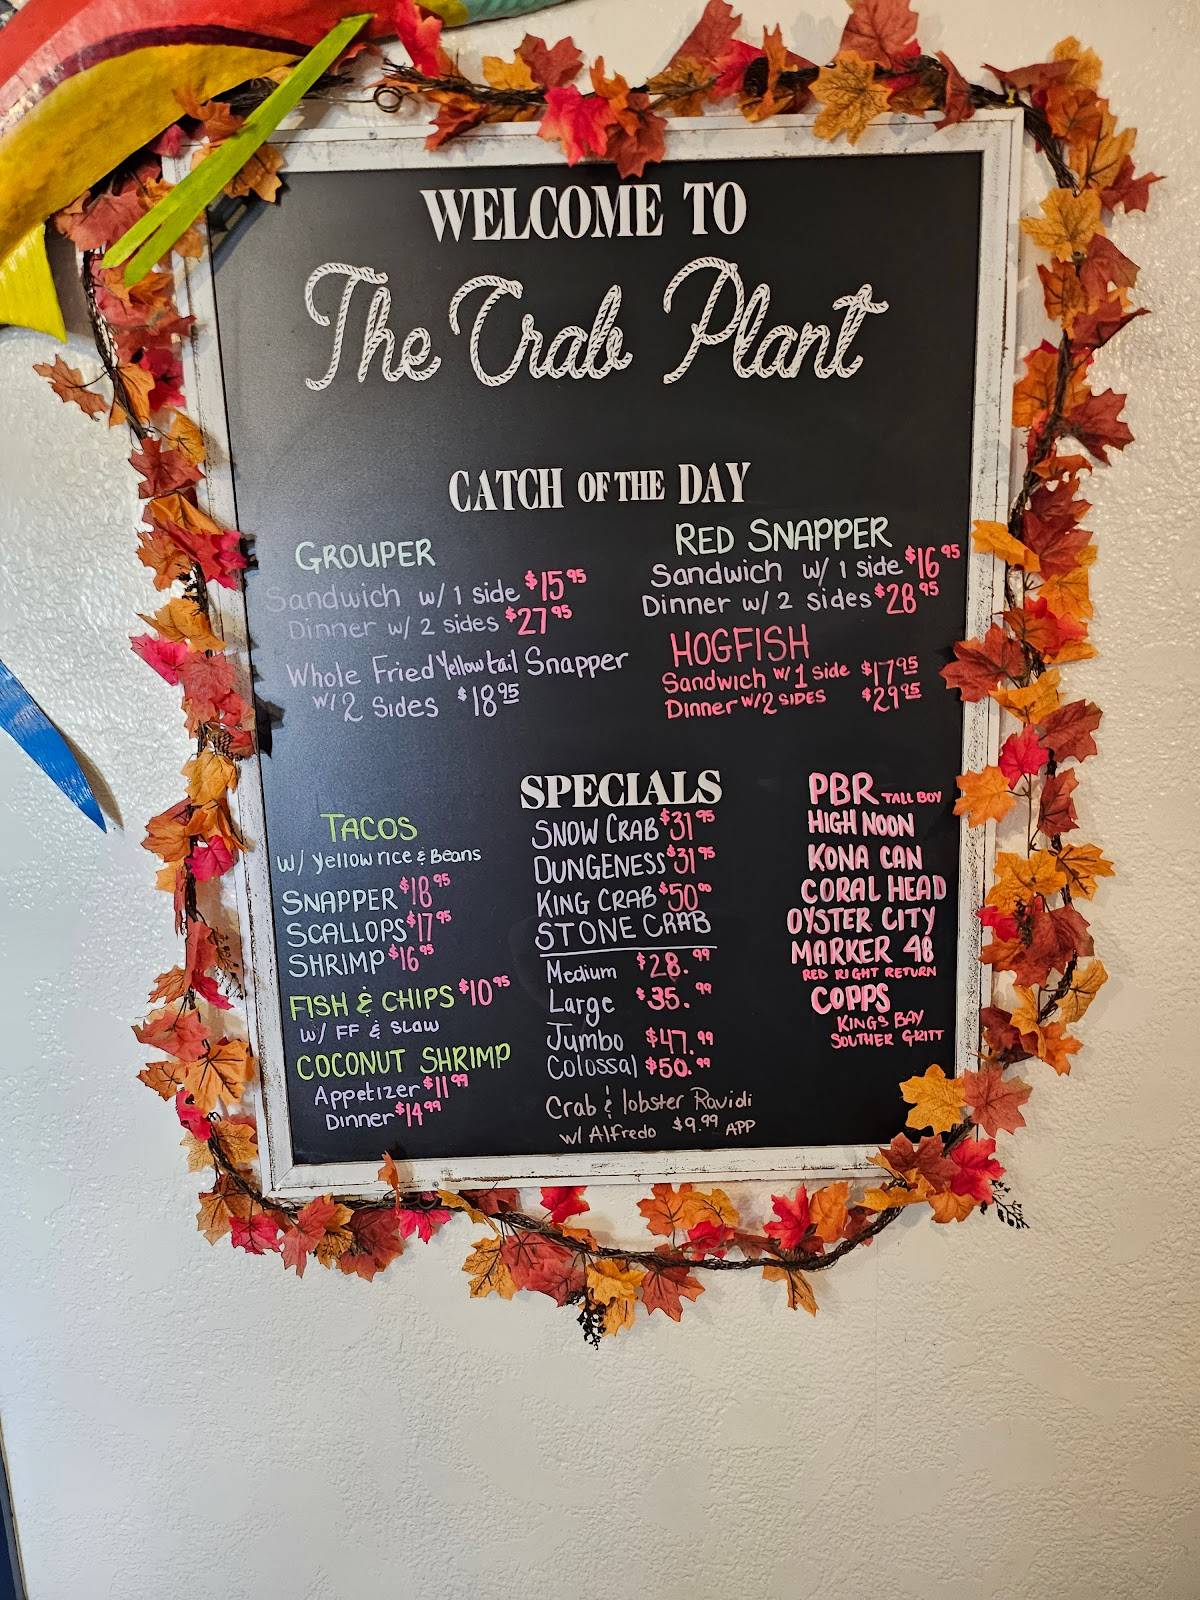 WELCOME TO
The Crab Plant
CATCH OF THE DAY
GROUPER
Sandwich w/ 1 side $15 95
Dinner w/ 2 sides $27 95
Whole Fried Yellowtail Snapper
w/ 2 Sides $18 95
RED SNAPPER
Sandwich w/ 1 side $16 95
Dinner w/ 2 sides $28 95
HOGFISH
Sandwich w/ 1 Side $17 95
Dinner w/2 SIDES $29 95
TACOS
w/ Yellow rice & Beans
SNAPPER $18 95
SCALLOPS $17 95
SHRIMP $16 95
FISH & CHIPS $10 95
w/ FF & SLAW
COCONUT SHRIMP
Appetizer $11 99
Dinner $14 99
SPECIALS
SNOW CRAB $31 95
DUNGENESS $31 95
KING CRAB $50 00
STONE CRAB
Medium $28.99
Large $35.99
Jumbo $47.99
Colossal $50.99
Crab & lobster Ravidi
w/ Alfredo $9.99 APP
PBR TALL BOY
HIGH NOON
KONA CAN
CORAL HEAD
OYSTER CITY
MARKER 48
RED RIGHT RETURN
COPPS
KINGS BAY
SOUTHER GRITT